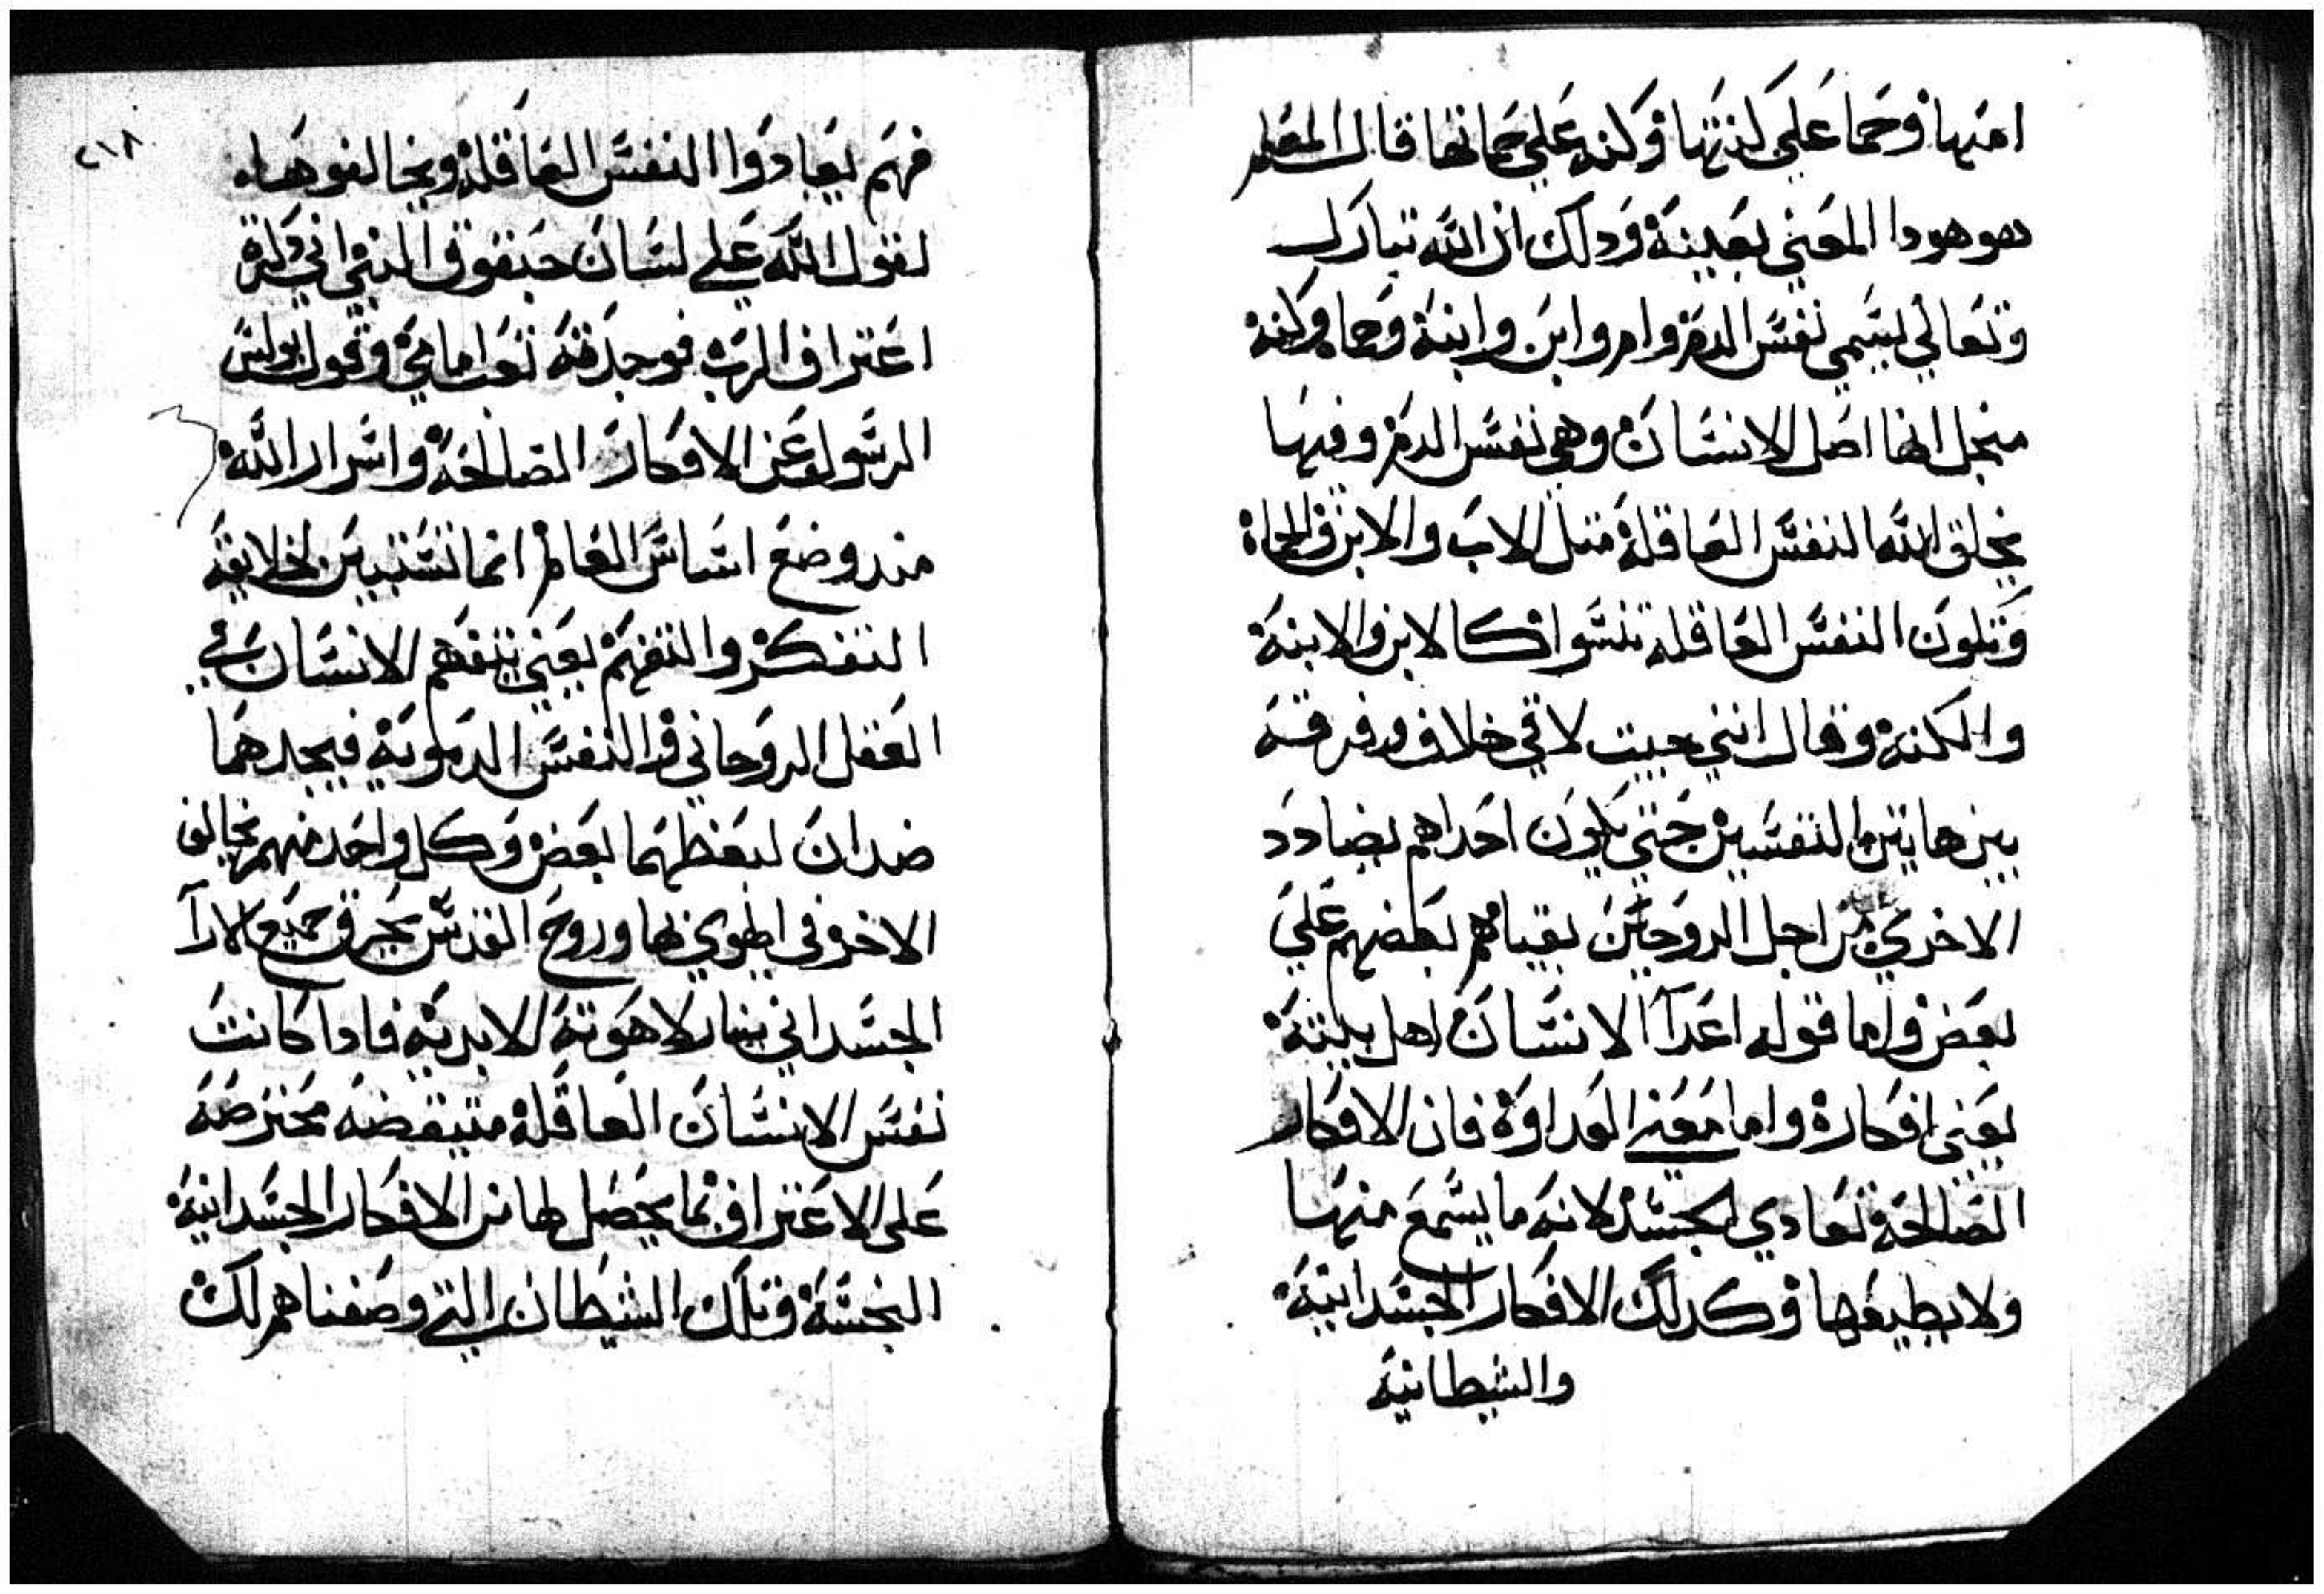 امها وحما على كنتها وكنه على حماتها قال المعلم
هو هودا المعني بعينه ودلك ان الله تبارك
وتعالي يسمي نفس الدم وام وابن وابنة وحما وكنة
منجل انها اصل الانسان وهي نفس الدم وفيها
يخلق الله النفس العاقلة متل الاب والابن والحماة
وتكون النفس العاقله تنسوا كالابن والابنة
والكنة وقال انني جيت لاقي خلاف وفرقة
بين هاتين النفسين حتي يكون احداهم يضادد
الاخري من اجل الروحين بقيامهم بعضهم علي
بعض واما قوله اعدآ الانسان اهل بيته
يعني افكاره واما معنى العداوة فان الافكار
الصالحة تعادي الجسد لانه ما يسمع منها
ولا يطيعها وكدلك الافكار الجسدانية
والشيطانية
٢١٨
فهم يعادوا النفس العاقلة ويخالفوها
لقول الله علي لسان حبقوق النبي اني
اعتراف الرب فوجدته تعب امامي وقول بولس
الرسول عن الافكار الصالحة واسرار الله
مند وضع اساس العالم انما تستبين لخلايقه
التفكر والتفهم يعني يتفهم الانسان في
العقل الروحاني والنفس الدموية فيجدهما
ضدان لبعظهما بعض وكل واحد منهم يخالف
الاخر في الهوي لها وروح القدس يحرق جميع الارآ
الجسداني بنار لاهوته الابدية فادا كانت
نفس الانسان العاقلة متيقضه محترصه
على الاعتراف بما يحصل لها من الافكار الجسدانية
النجسة وتلك الشيطان التي وصفناهم لك